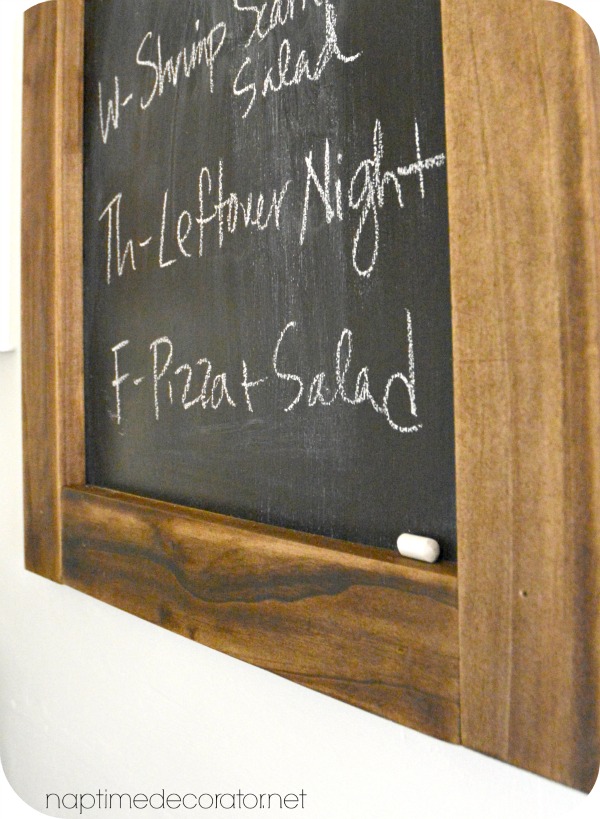 W-Shrimp
Salad
Th-Leftover Night
F-Pizza + Salad
naptimedecorator.net